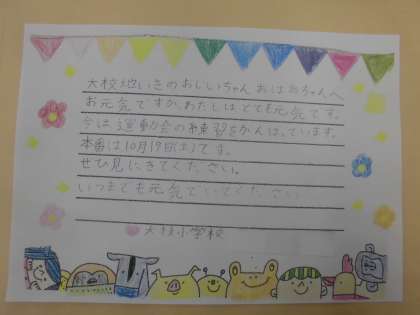 大枝地いきのおじいちゃんおばあちゃんへ
お元気ですか。わたしはとても元気です。
今は運動会の練習をがんばっています。
本番は10月19日(土)です。
ぜひ見にきてください。
いつまでも元気でいてください
大枝小学校